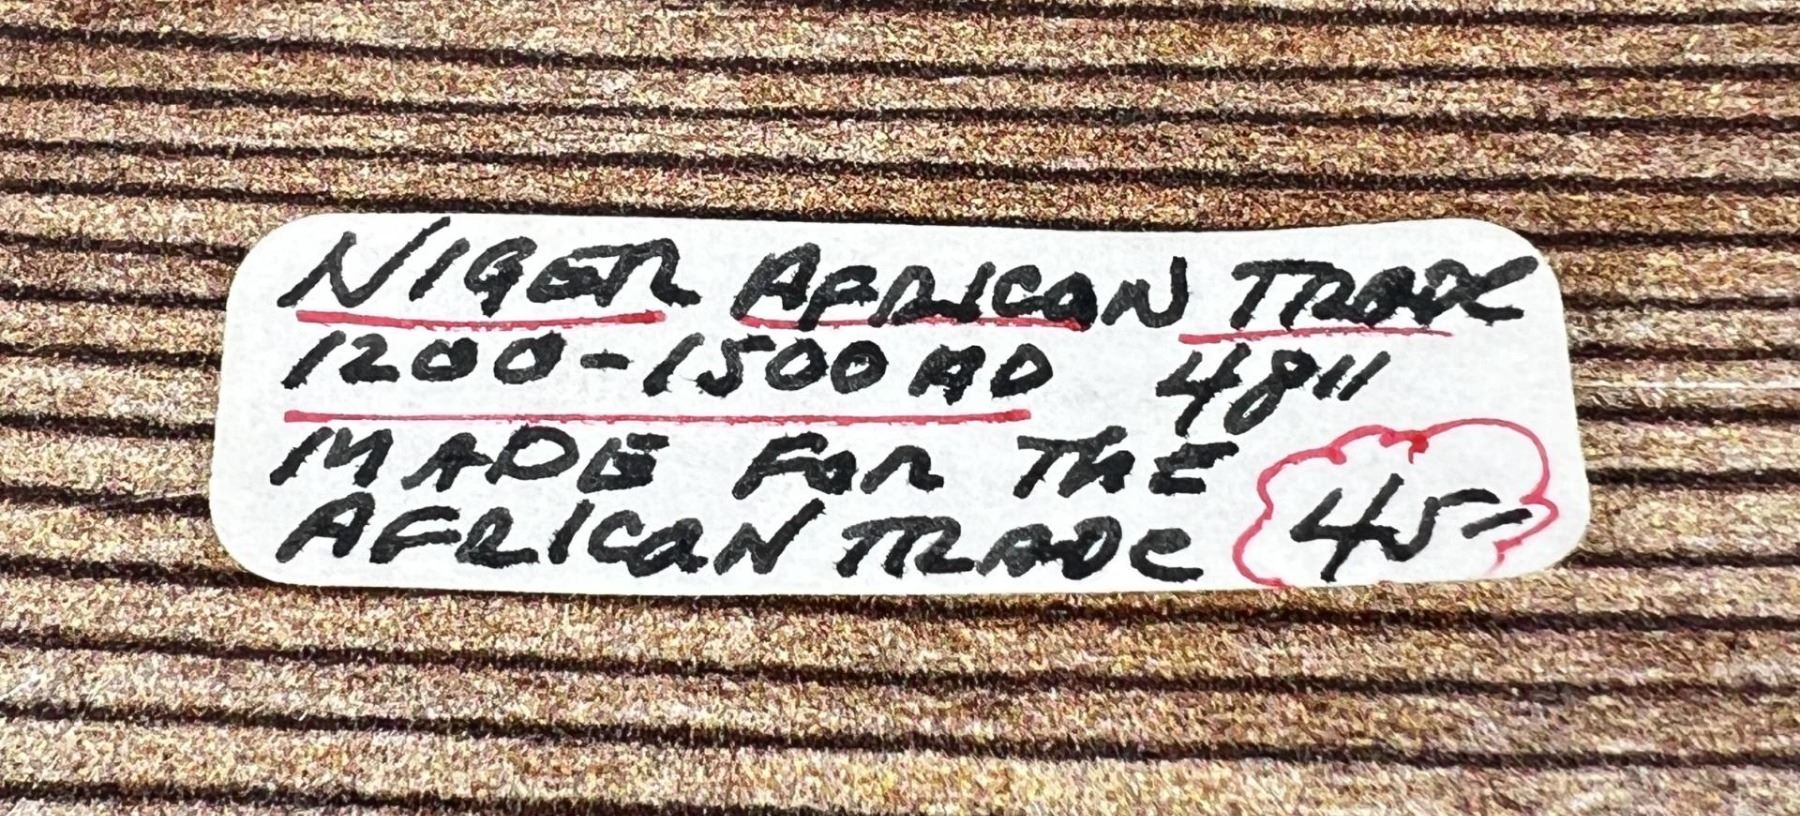 NIGER AFRICAN TRADE
1200-1500 AD 48"
MADE FOR THE
AFRICAN TRADE 45-